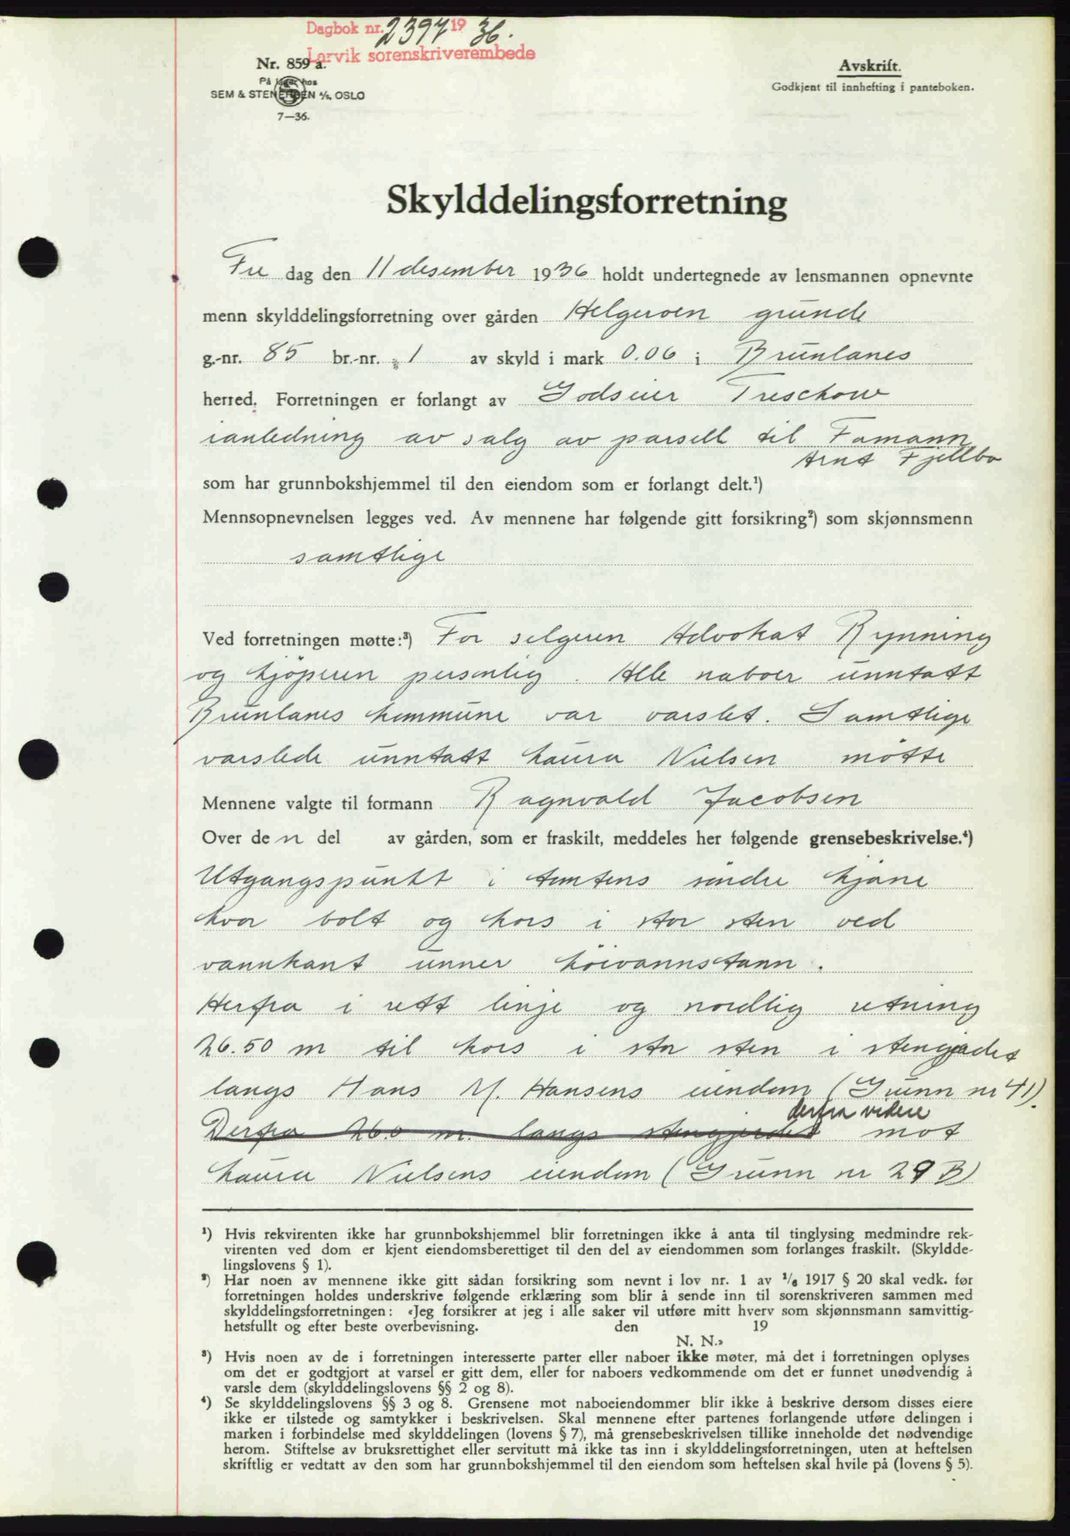 Dagbok nr. 2397 19 36.
Larvik sorenskriverembede
Nr. 859 a.
På lager hos
SEM & STENERSEN A/S, OSLO
7—36.
Avskrift.
Godkjent til innhefting i panteboken.
Skylddelingsforretning
Fre dag den 11 desember 1936 holdt undertegnede av lensmannen opnevnte
menn skylddelingsforretning over gården Helgeroen grunde
g.-nr. 85 br.-nr. 1 av skyld i mark 0.06 i Brunlanes
herred. Forretningen er forlangt av Godseier Treschow
ianledning av salg av parsell til Formann
Arnt Fjellbo
som har grunnbokshjemmel til den eiendom som er forlangt delt.¹)
Mennsopnevnelsen legges ved. Av mennene har følgende gitt forsikring²) som skjønnsmenn
samtlige
Ved forretningen møtte:³) For selgeren Advokat Rynning
og kjöperen personlig. Alle naboer unntatt
Brunlanes kommune var varslet. Samtlige
varslede unntatt Laura Nielsen mötte
Mennene valgte til formann Ragnvald Jacobsen
Over den del av gården, som er fraskilt, meddeles her følgende grensebeskrivelse.⁴)
Utgangspunkt i tomtens söndre hjöne
hvor bolt og kors i stor sten ved
vannkant unner höivannstann.
Herfra i rett linje og nordlig retning
26.50 m til kors i stor sten i stengjædet
langs Hans M. Hansens eiendom (Grunn nr 41).
derfra videre
Derfra 26.0 m. langs stengjerdet mot
Laura Nielsens eiendom (Grunn nr 29 B)
¹) Hvis rekvirenten ikke har grunnbokshjemmel blir forretningen ikke å anta til tinglysing medmindre rek-
virenten ved dom er kjent eiendomsberettiget til den del av eiendommen som forlanges fraskilt. (Skyldde-
lingslovens § 1).
²) Har noen av mennene ikke gitt sådan forsikring som nevnt i lov nr. 1 av ¹/₆ 1917 § 20 skal vedk. før
forretningen holdes underskrive følgende erklæring som blir å sende inn til sorenskriveren sammen med
skylddelingsforretningen: «Jeg forsikrer at jeg i alle saker vil utføre mitt hverv som skjønnsmann samvittig-
hetsfullt og efter beste overbevisning. den 19
N. N.»
³) Hvis noen av de i forretningen interesserte parter eller naboer ikke møter, må det i forretningen oplyses
om det er godtgjort at varsel er gitt dem, eller for naboers vedkommende om det er funnet unødvendig å
varsle dem (skylddelingslovens §§ 2 og 8).
⁴) Se skylddelingslovens §§ 3 og 8. Grensene mot naboeiendommer blir ikke å beskrive dersom disses eiere
ikke er tilstede og samtykker i beskrivelsen. Skal mennene efter partenes forlangende utføre delingen i
marken i forbindelse med skylddelingen (lovens § 7), må grensebeskrivelsen tillike inneholde det nødvendige
herom. Stiftelse av bruksrettighet eller servitutt må ikke tas inn i skylddelingsforretningen, uten at heftelsen
skriftlig er vedtatt av den som har grunnbokshjemmel til den eiendom som heftelsen skal hvile på (lovens § 5).